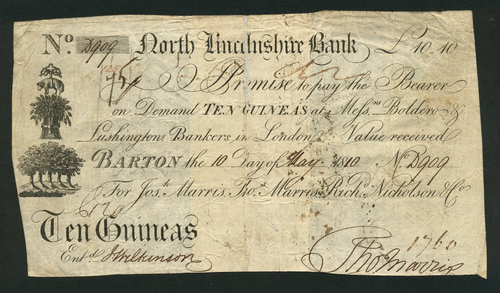 No. D909 North Lincolnshire Bank £10.10
I Promise to pay the Bearer
on Demand TEN GUINEAS at Messrs. Boldero &
Lushington Bankers in London Value received
BARTON the 10 Day of May 1810 No. D909
For Josh. Marris, Thos. Marris, Richd. Nicholson & Co.
Ten Guineas
1760
Entd. J Wilkinson Thos Marris